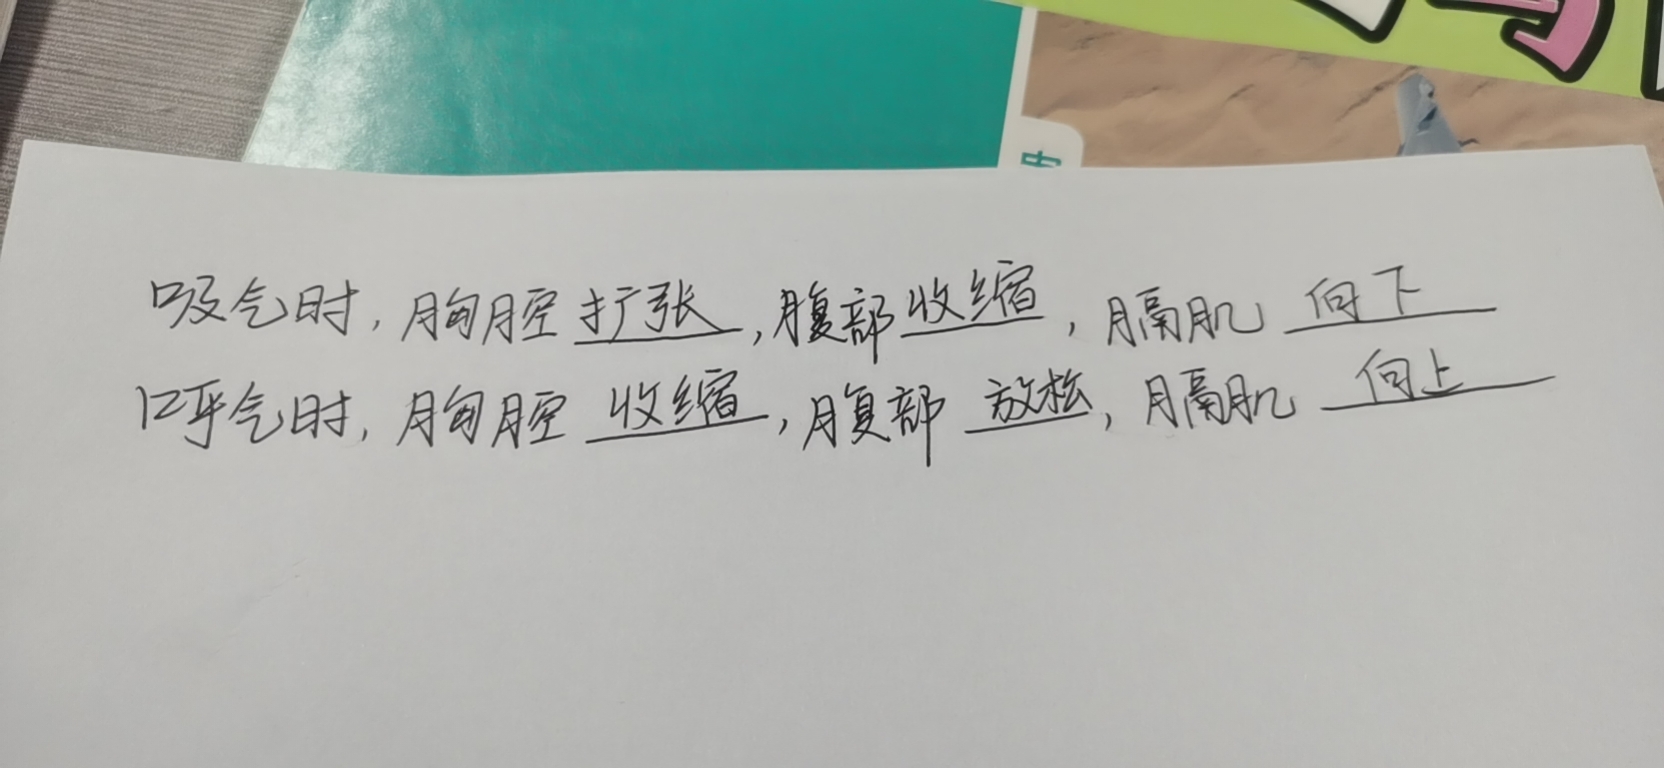 吸气时,胸腔扩张,腹部收缩,膈肌向下
呼气时,胸腔收缩,腹部放松,膈肌向上